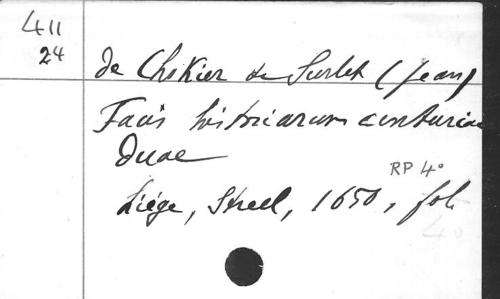 411
24
de Chokier de Surlet (Jean)
Facis historiarum centuriae
duae
RP 4°
Liége, Streel, 1650, fol.
4°